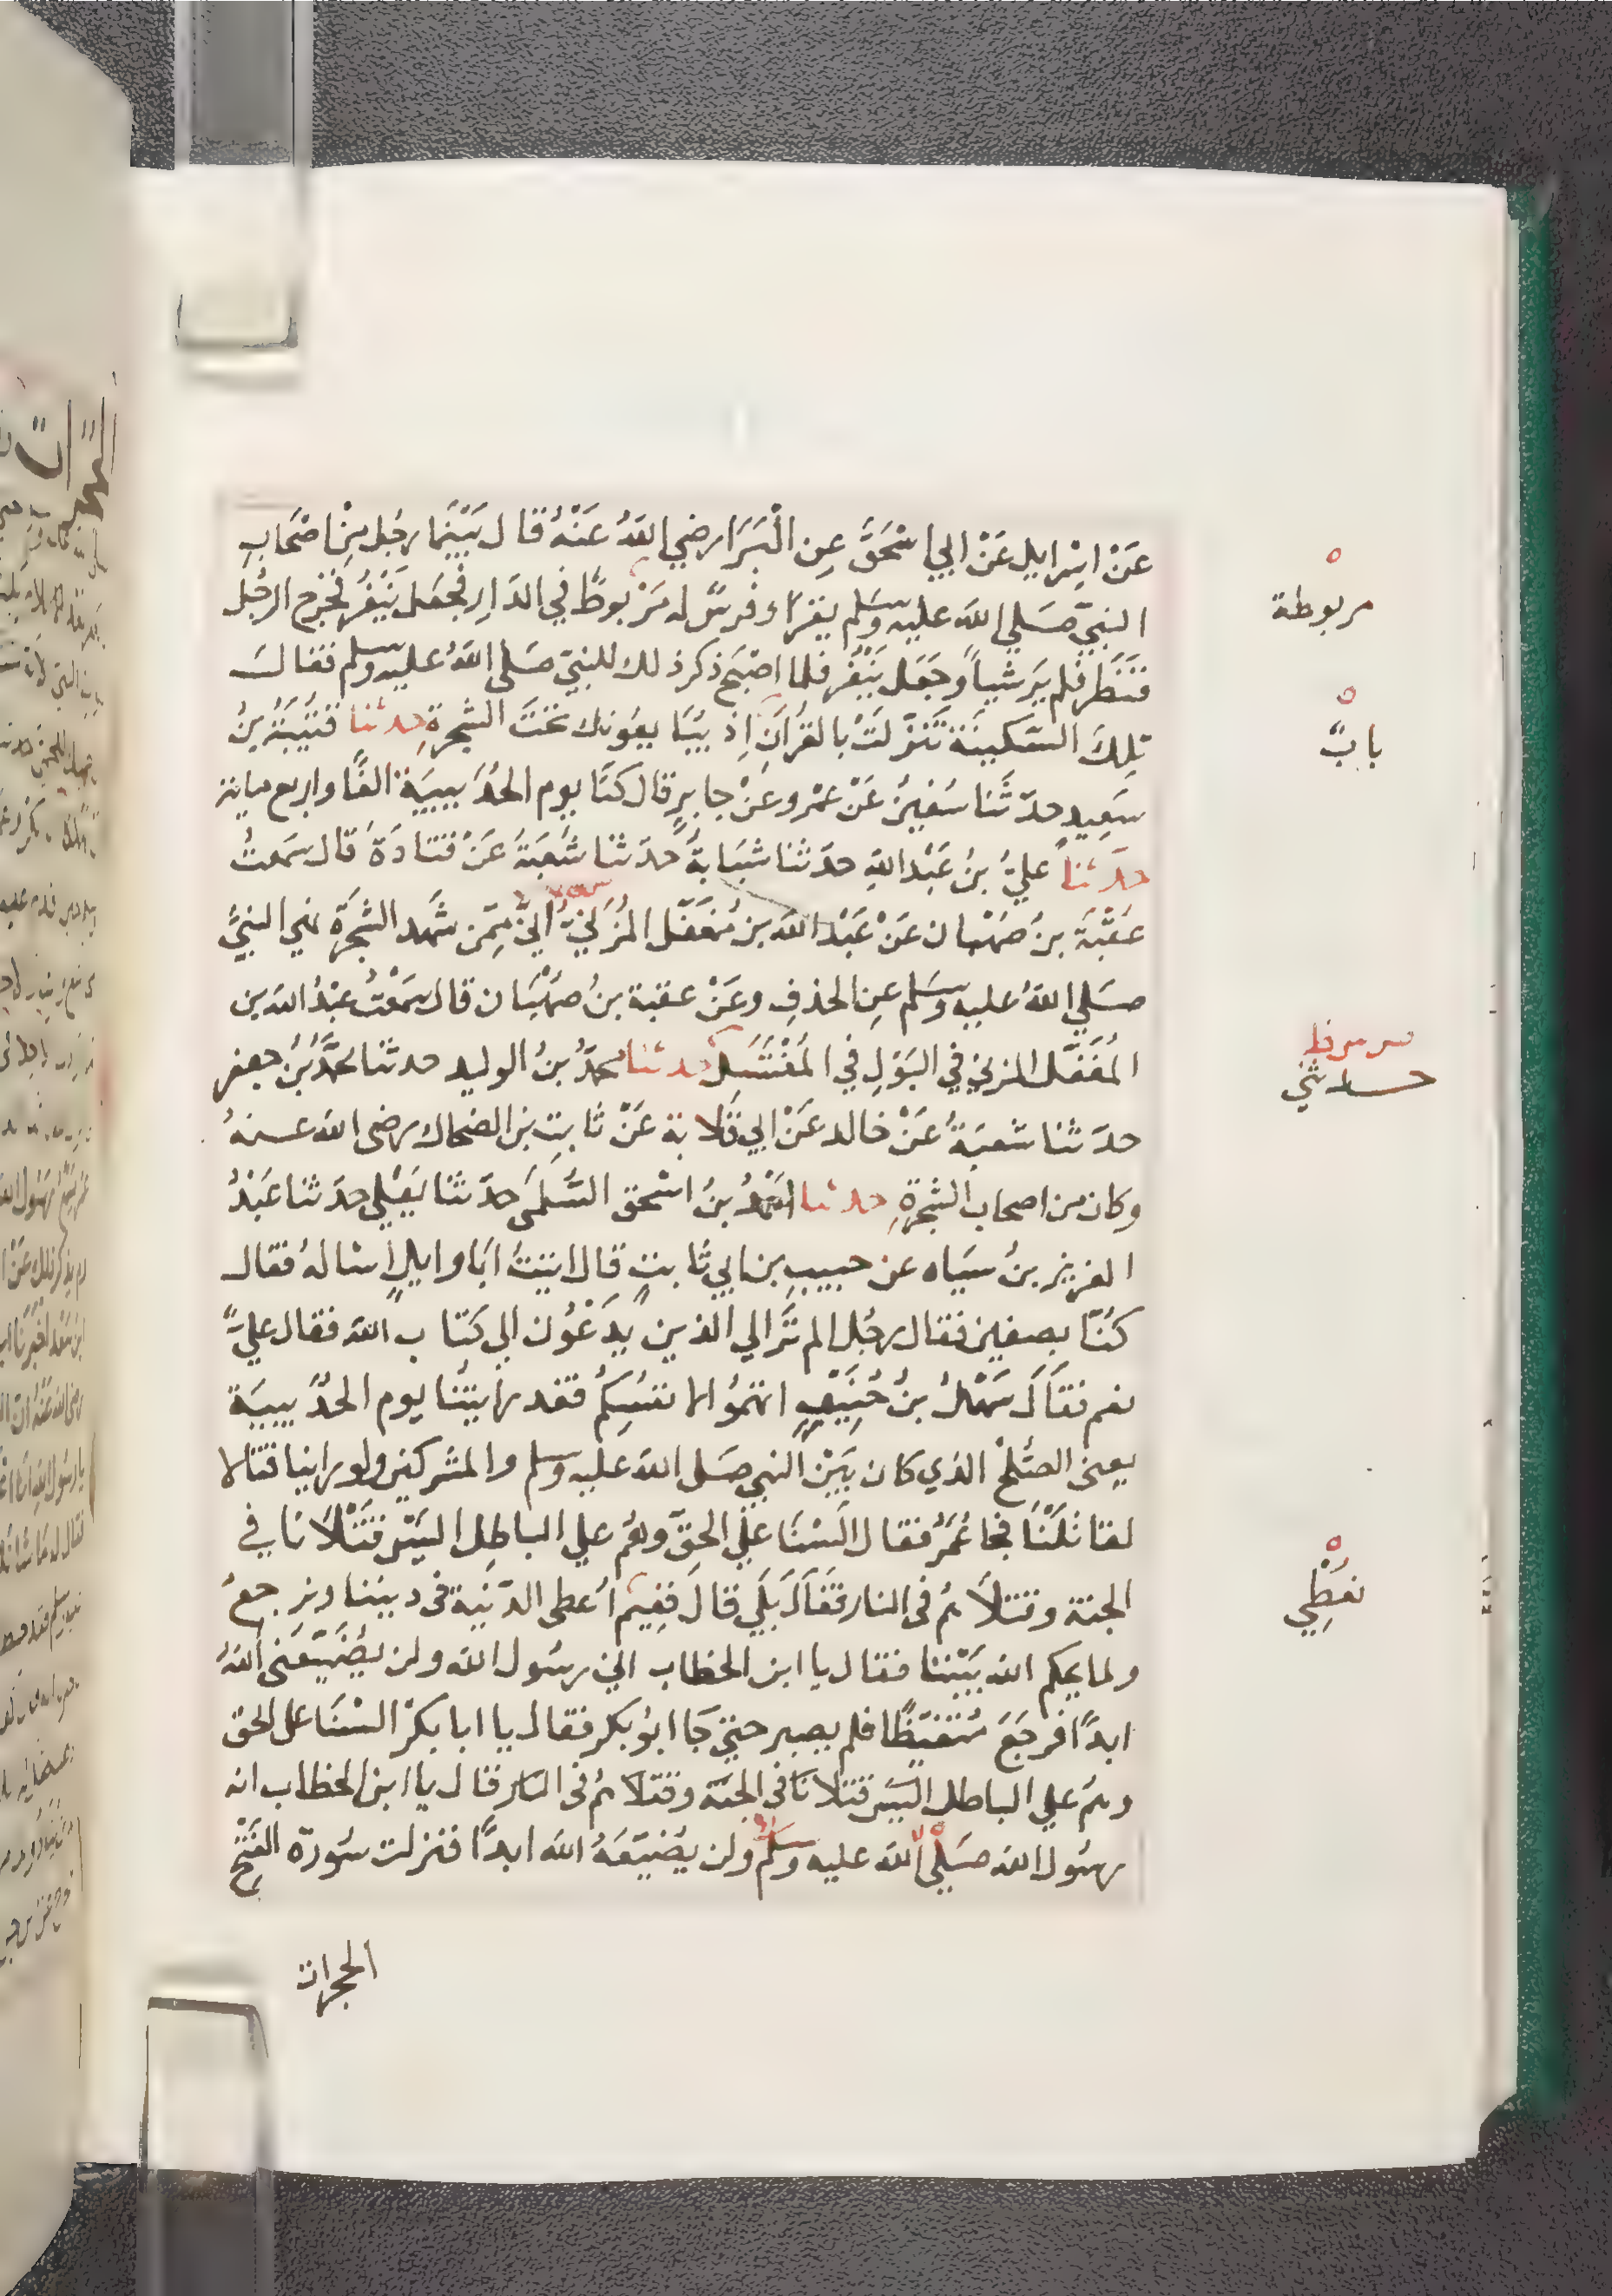 عَنْ اسْرايل عَنْ ابي اسْحَقَ عِن الْبَرَا رضي اللهُ عَنْهُ قال بَيْنَما رجُل مِنْ اصْحَابِ
النبيّ صَلي الله عليه وسَلم يقرَاء وفرسٌ له مَرْبوطٌ في الدَارِ فجعَل يَنْفُرُ فخرج الرجُل
فنَظر فلم يَرَ شياً وَجَعَل يَنْفُر فلما اصْبَح ذكر ذلك للنبيّ صَلى اللهُ عليه وسلم فقال
تِلكَ السَّكينَة تَنَزَّلَتْ بالقُراَنِ اِذ يُبَا يعُونك تحْتَ الشجرةِ حدثنا قُتَيْبَةُ بنُ
سَعِيد حدّثَنا سُفينُ عَنْ عَمْرو عَنْ جابرٍ قال كنّا يوم الحُدَيبيَة الفًا واربع ماية
حدثنا عليُّ بنُ عَبْد اللهِ حدَثنا شبَابةُ حدَثنا شُعبَةُ عَنْ قتادَةَ قَال سَمَعتُ
عقْبَةَ بنُ صُهْبان عَنْ عَبْد الله بن مُغَفّل المُزَنيّ اِنيّ مِمّن شَهد الشجَرَة نهي النبيُّ
صَلي اللهُ عليه وسَلم عِن الحذفِ وعَنْ عقبة بنُ صُهْبَان قال سَمْعْتُ عبْدُ الله بن
المُغَفّل المزني في البَوْلِ في المُغْتَسَل حدثنا محمدُ بنُ الوليد حدثنا محمّدُ بْنُ جعفر
حدَثنا شعبَةُ عَنْ خالد عَنْ ابي قلابة عَنْ ثابتِ بن الضحاك رضى الله عنهُ
وكان من اصحاب الشجرةِ حدثنا احْمدُ بنُ اسْحق السُّلمىَ حدَثنا يَعْلي حدَثنا عَبْدُ
العزيز بنُ سيَاه عن حبيبِ بن ابي ثابتٍ قال اتيتُ ابَا وايلٍ اساله فقال
كنُّا بصفين فقال رجُل الم تَر الي الذين يدَعْوُن الي كتاب الله فقال عليٌّ
نعم فقَاَل سَهْلُ بنُ حُنَيْفٍ اتهمُوُا نفسِكُم فقد رايتُنا يوم الحُدَيبيَة
يعنى الصُلْح الذي كان بيَنْ النبي صَلى الله عليه وسلم والمشركين ولو راينا قتالا
لقاتلْنا فجا عُمَرُ فقال الَسْنَا علي الحقّ وهُم علي الباطل اليَسْ قَتْلاَنا في
الجنة وقتلاَهُم فى النار فقَاَل بَلَي قالَ ففِيم اُعطى الدَنية في ديننا ونرجعُ
ولما يحكم الله بيْننا فقال يا ابن الخطاب اني رسُول الله ولن يُضَيّعَنى اللهُ
ابدًا فرجَعَ مُتغيّظًا فلم يصبر حتي جَا ابوُ بكر فقال يا ابا بكرْ السْنَا على الحق
وهُم علي الباطل اليس قتلانا في الجنَة وقتلاهُم فى النار قال يا ابن الخطاب انه
رسُول الله صَلي الله عليه وسَلم ولن يُضَيّعَهُ الله ابدًا فنزلت سُورة الفَتْح
الحجرات
مربوطة
بابٌ
حدثني
نعُطِي